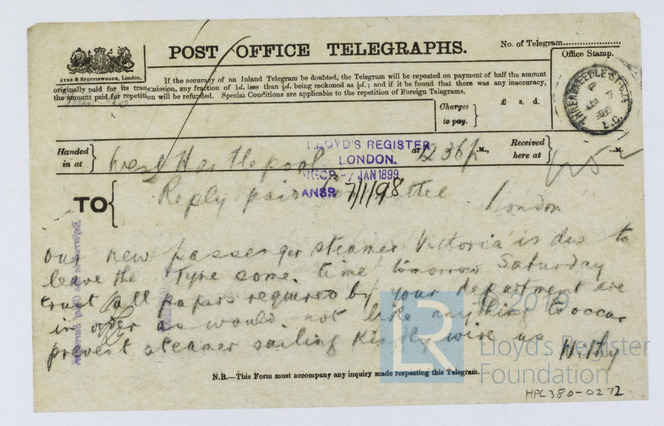 POST OFFICE TELEGRAPHS.
No. of Telegram
Office Stamp.
EYRE & SPOTTISWOODE, London.
If the accuracy of an Inland Telegram be doubted, the Telegram will be repeated on payment of half the amount
originally paid for its transmission, any fraction of 1d. less than ½d. being reckoned as ½d.; and if it be found that there was any inaccuracy,
the amount paid for repetition will be refunded. Special Conditions are applicable to the repetition of Foreign Telegrams.
Charges to pay. £ s. d.
THREADNEEDLE ST. B.O. E.C.
Handed in at West Hartlepool at 12 36 p M., Received here at M.
LLOYD'S REGISTER
LONDON.
RECD -7 JAN 1899
ANSR 7/1/98
TO Reply paid London
our new passenger steamer Victoria is due to
leave the Tyne some time tomorrow Saturday
trust all papers required by your department are
in order as would not like anything to occur
prevent steamer sailing Kindly wire us Withy
© 2019
LR
Lloyd's Register
Foundation
N.B.—This Form must accompany any inquiry made respecting this Telegram.
HPL380-0272